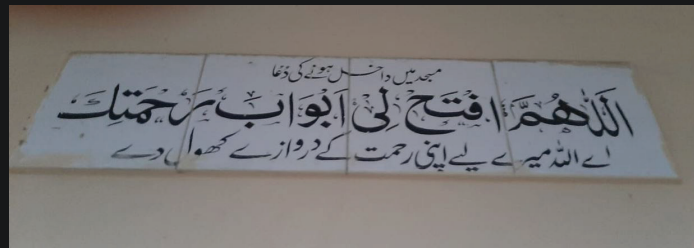 مسجد میں داخل ہونے کی دعا
اَللّٰهُمَّ افْتَحْ لِیْ اَبْوَابَ رَحْمَتِكَ
اے اللہ میرے لیے اپنی رحمت کے دروازے کھول دے